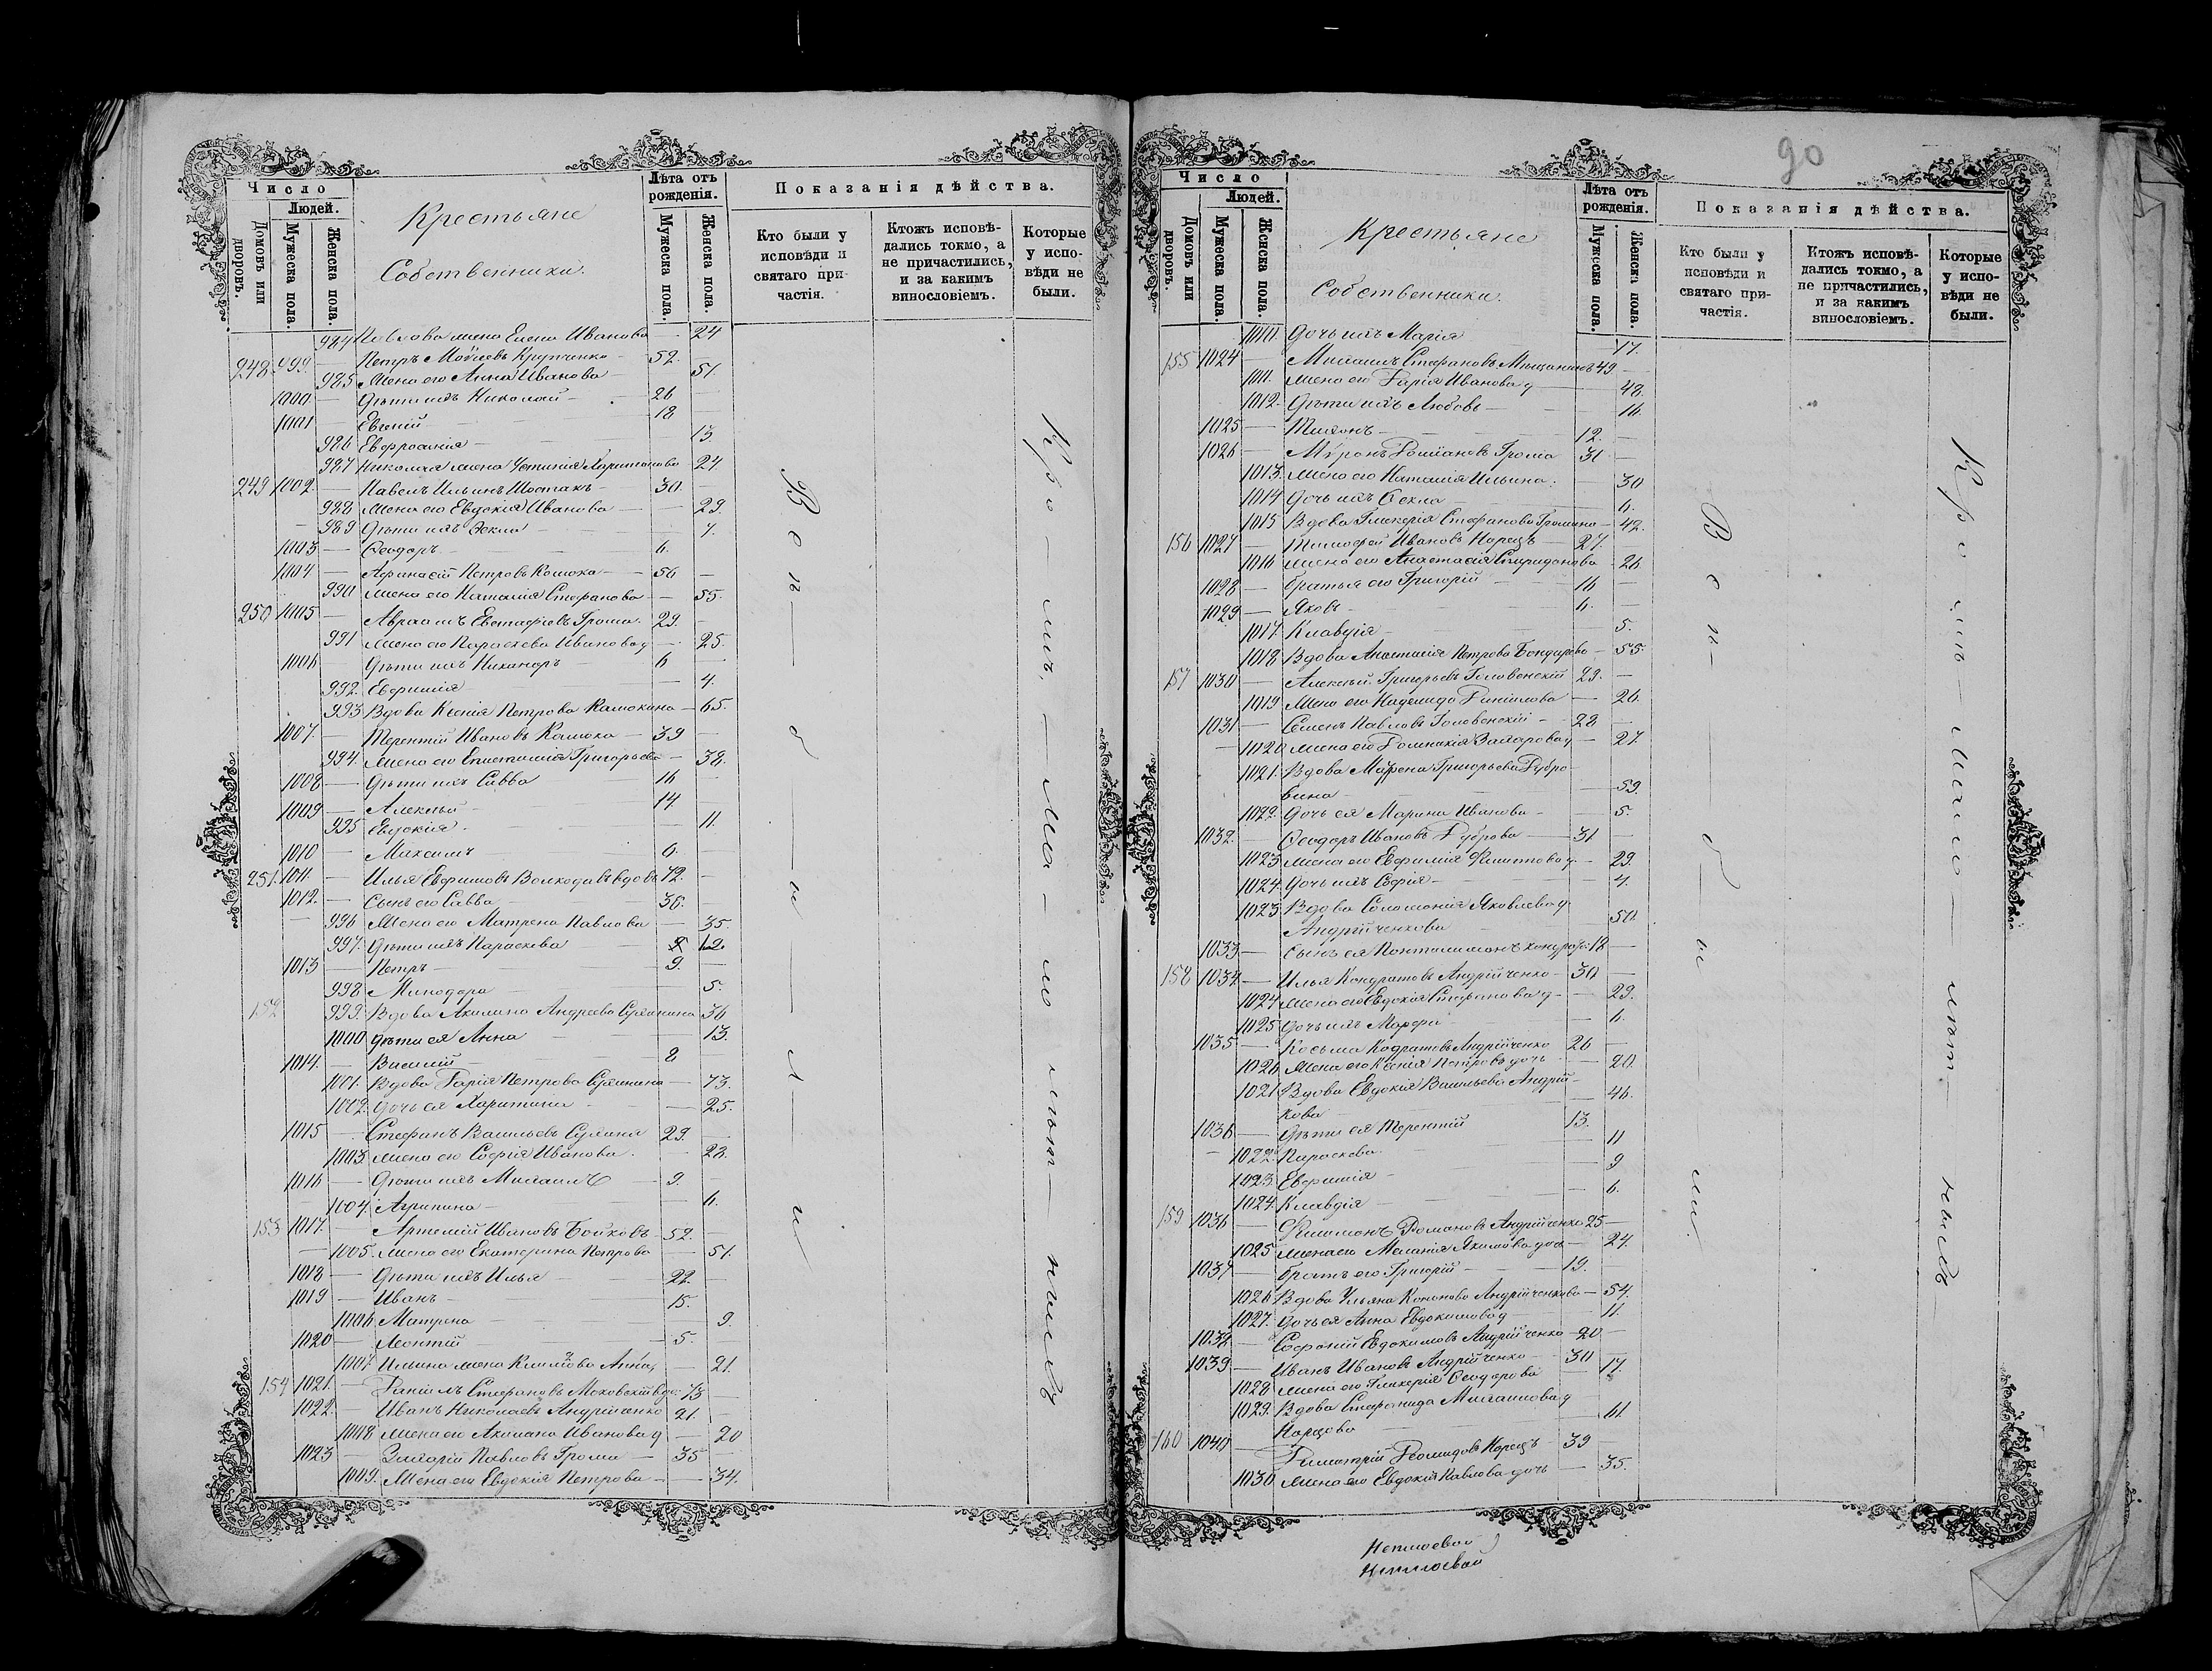 Число
Людей.
Домовъ или дворовъ.
Мужеска пола.
Женска пола.
Крестьяне
Собственники.
Лѣта отъ рожденія.
Мужеска пола.
Женска пола.
Показанія дѣйства.
Кто были у исповѣди и святаго при-частія.
Ктожъ исповѣ-дались токмо, а не причастились, и за какимъ винословіемъ.
Которые у испо-вѣди не были.
984 Павлова жена Елена Иванова — 24
248. 999 — Петръ Моѵсеевъ Крупченко — 52.
985 Жена его Анна Иванова — 51
1000 — Дѣти ихъ Николай — 26
1001 — Евгеній — 18
986 Евфросинія — 13.
987 Николая жена Устинія Харитонова 24.
249 1002. — Павелъ Ильинъ Шостакъ — 30.
988 Жена его Евдокія Иванова — 29.
989 Дѣти ихъ Ѳекла — 7.
1003 — Ѳеодоръ — 6.
1004 — Афанасій Петровъ Камока — 56
990 Жена его Наталія Стефанова — 55.
250 1005 — Авраамъ Евстафіевъ Грома. 29.
991 Жена его Параскева Иванова д — 25.
1006 — Дѣти ихъ Никаноръ — 6
992. Евфимія — 4.
993. Вдова Ксенія Петрова Камокина — 65.
1007. — Терентій Ивановъ Камока — 39
994. Жена его Епистимія Григорьева — 38.
1008 — Дѣти ихъ Савва 16
1009 — Алексѣй — 14
995 Евдокія. — 11
1010 — Максимъ 6.
251. 1011. — Илья Ефимовъ Волкодавъ вдовъ 72.
1012. — Сынъ его Савва — 36.
996 Жена его Матрена Павлова — 35.
997. Дѣти ихъ Параскева — 12
1013 — Петръ — 9.
998 Минодора — 5.
152 999. Вдова Акилина Андреева Сулимина 36
1000 Дѣти ея Анна — 13.
1014. — Василій — 8
1001. Вдова Дарія Петрова — 73.
1002. Дочь ея Харитина — 25.
1015 — Стефанъ Васильевъ — 29.
1003. Жена его Софія Иванова. — 28.
1016 — Дѣти ихъ Михаилъ — 9.
1004. Агрипина — 6.
153 1017. — Артемій Ивановъ Бойковъ — 52.
1005. Жена его Екатерина Петрова — 51.
1018 — Дѣти ихъ Илья — 22.
1019 — Иванъ — 15.
1006 Матрена — 9.
1020 — Леонтій — 5.
1007. Ильина жена Климова Анна, — 21.
154 1021. — Даніилъ Стефановъ Моховскій вдо 73
1022. — Иванъ Николаевъ Андрійченко 21.
1008 Жена его Акилина Иванова д — 20
1023 — Захарій Павловъ Грома — 35
1009. Жена его Евдокія Петрова — 34.
Всп о и л и
90
Число
Людей.
Домовъ или дворовъ.
Мужеска пола.
Женска пола.
Крестьяне
Собственники.
Лѣта отъ рожденія.
Мужеска пола.
Женска пола.
Показанія дѣйства.
Кто были у исповѣди и святаго при-частія.
Ктожъ исповѣ-дались токмо, а не причастились, и за какимъ винословіемъ.
Которые у испо-вѣди не были.
1010. Дочь ихъ Марія — 17.
155 1024 — Михаилъ Стефановъ Мѣщаниновъ 49
1011. Жена его Дарія Иванова д — 48.
1012. Дѣти ихъ Любовь — 16.
1025 — Тихонъ — 12.
1026 — Мѵронъ Романовъ Грома 31
1013. Жена его Наталія Ильина. — 30
1014 Дочь ихъ Ѳекла — 6.
1015 Вдова Гликерія Стефанова Громина — 42.
156 1027 — Тимофей Ивановъ Норецъ — 27.
1016 Жена его Анастасія Спиридонова 26
1028 — братья его Григорій — 16
1029 — Яковъ — 6.
1017. Клавдія — 5.
1018 Вдова Анастасія Петрова Бондарева — 55.
157 1030 — Алексѣй Григорьевъ Головенскій 29.
1019 Жена его Надежда Данілова — 26.
1031 — Семенъ Павловъ Головенскій — 28
1020 Жена его Домникія Захарова д — 27.
1021. Вдова Мавфена Григорьева Дубро-
вина — 59.
1022. Дочь ея Марина Иванова — 5.
1032. — Ѳеодоръ Ивановъ Дуброва — 31
1023 Жена его Евфимія Филиппова д — 29.
1024. Дочь ихъ Софія — 4.
1023. Вдова Соломонія Яковлева д
Андрійченкова — 50.
1033 — Сынъ ея Пантилимонъ Кондрат. 18
158 1034 — Илья Кондратовъ Андрійченко — 30
1024 Жена его Евдокія Стефанова д — 29.
1025 Дочь ихъ Марфа — 6.
1035 — Косьма Кодратовъ Андрійченко 26
1026 Жена его Ксенія Петровъ дочь — 20.
1021 Вдова Евдокія Васильева Андрій-
кова — 46.
1036 — Дѣти ея Терентій 13.
1022. Параскева. — 11
1023. Евфимія — 9
1024. Клавдія — 6.
159 1036 — Филимонъ Романовъ Андрійченко 25
1025 Жена его Меланія Якимова доч — 24.
1037 — братъ его Григорій — 19.
1026 Вдова Ульяна Кононова Андрійченкова — 54.
1027. Дочь ея Анна Евдокимова д 11.
1038 — Софоній Евдокимовъ Андрійченко — 20
1039 — Иванъ Ивановъ Андрійченко — 30
1028 Жена его Гликерія Ѳеодорова 17.
1029. Вдова Стефанида Михаилова д
Норцова — 61.
160 1040 — Димитрій Деомидовъ Норецъ — 39
1030 Жена его Евдокія Павлова дочь — 35.
Неплюевой
Неплюевой